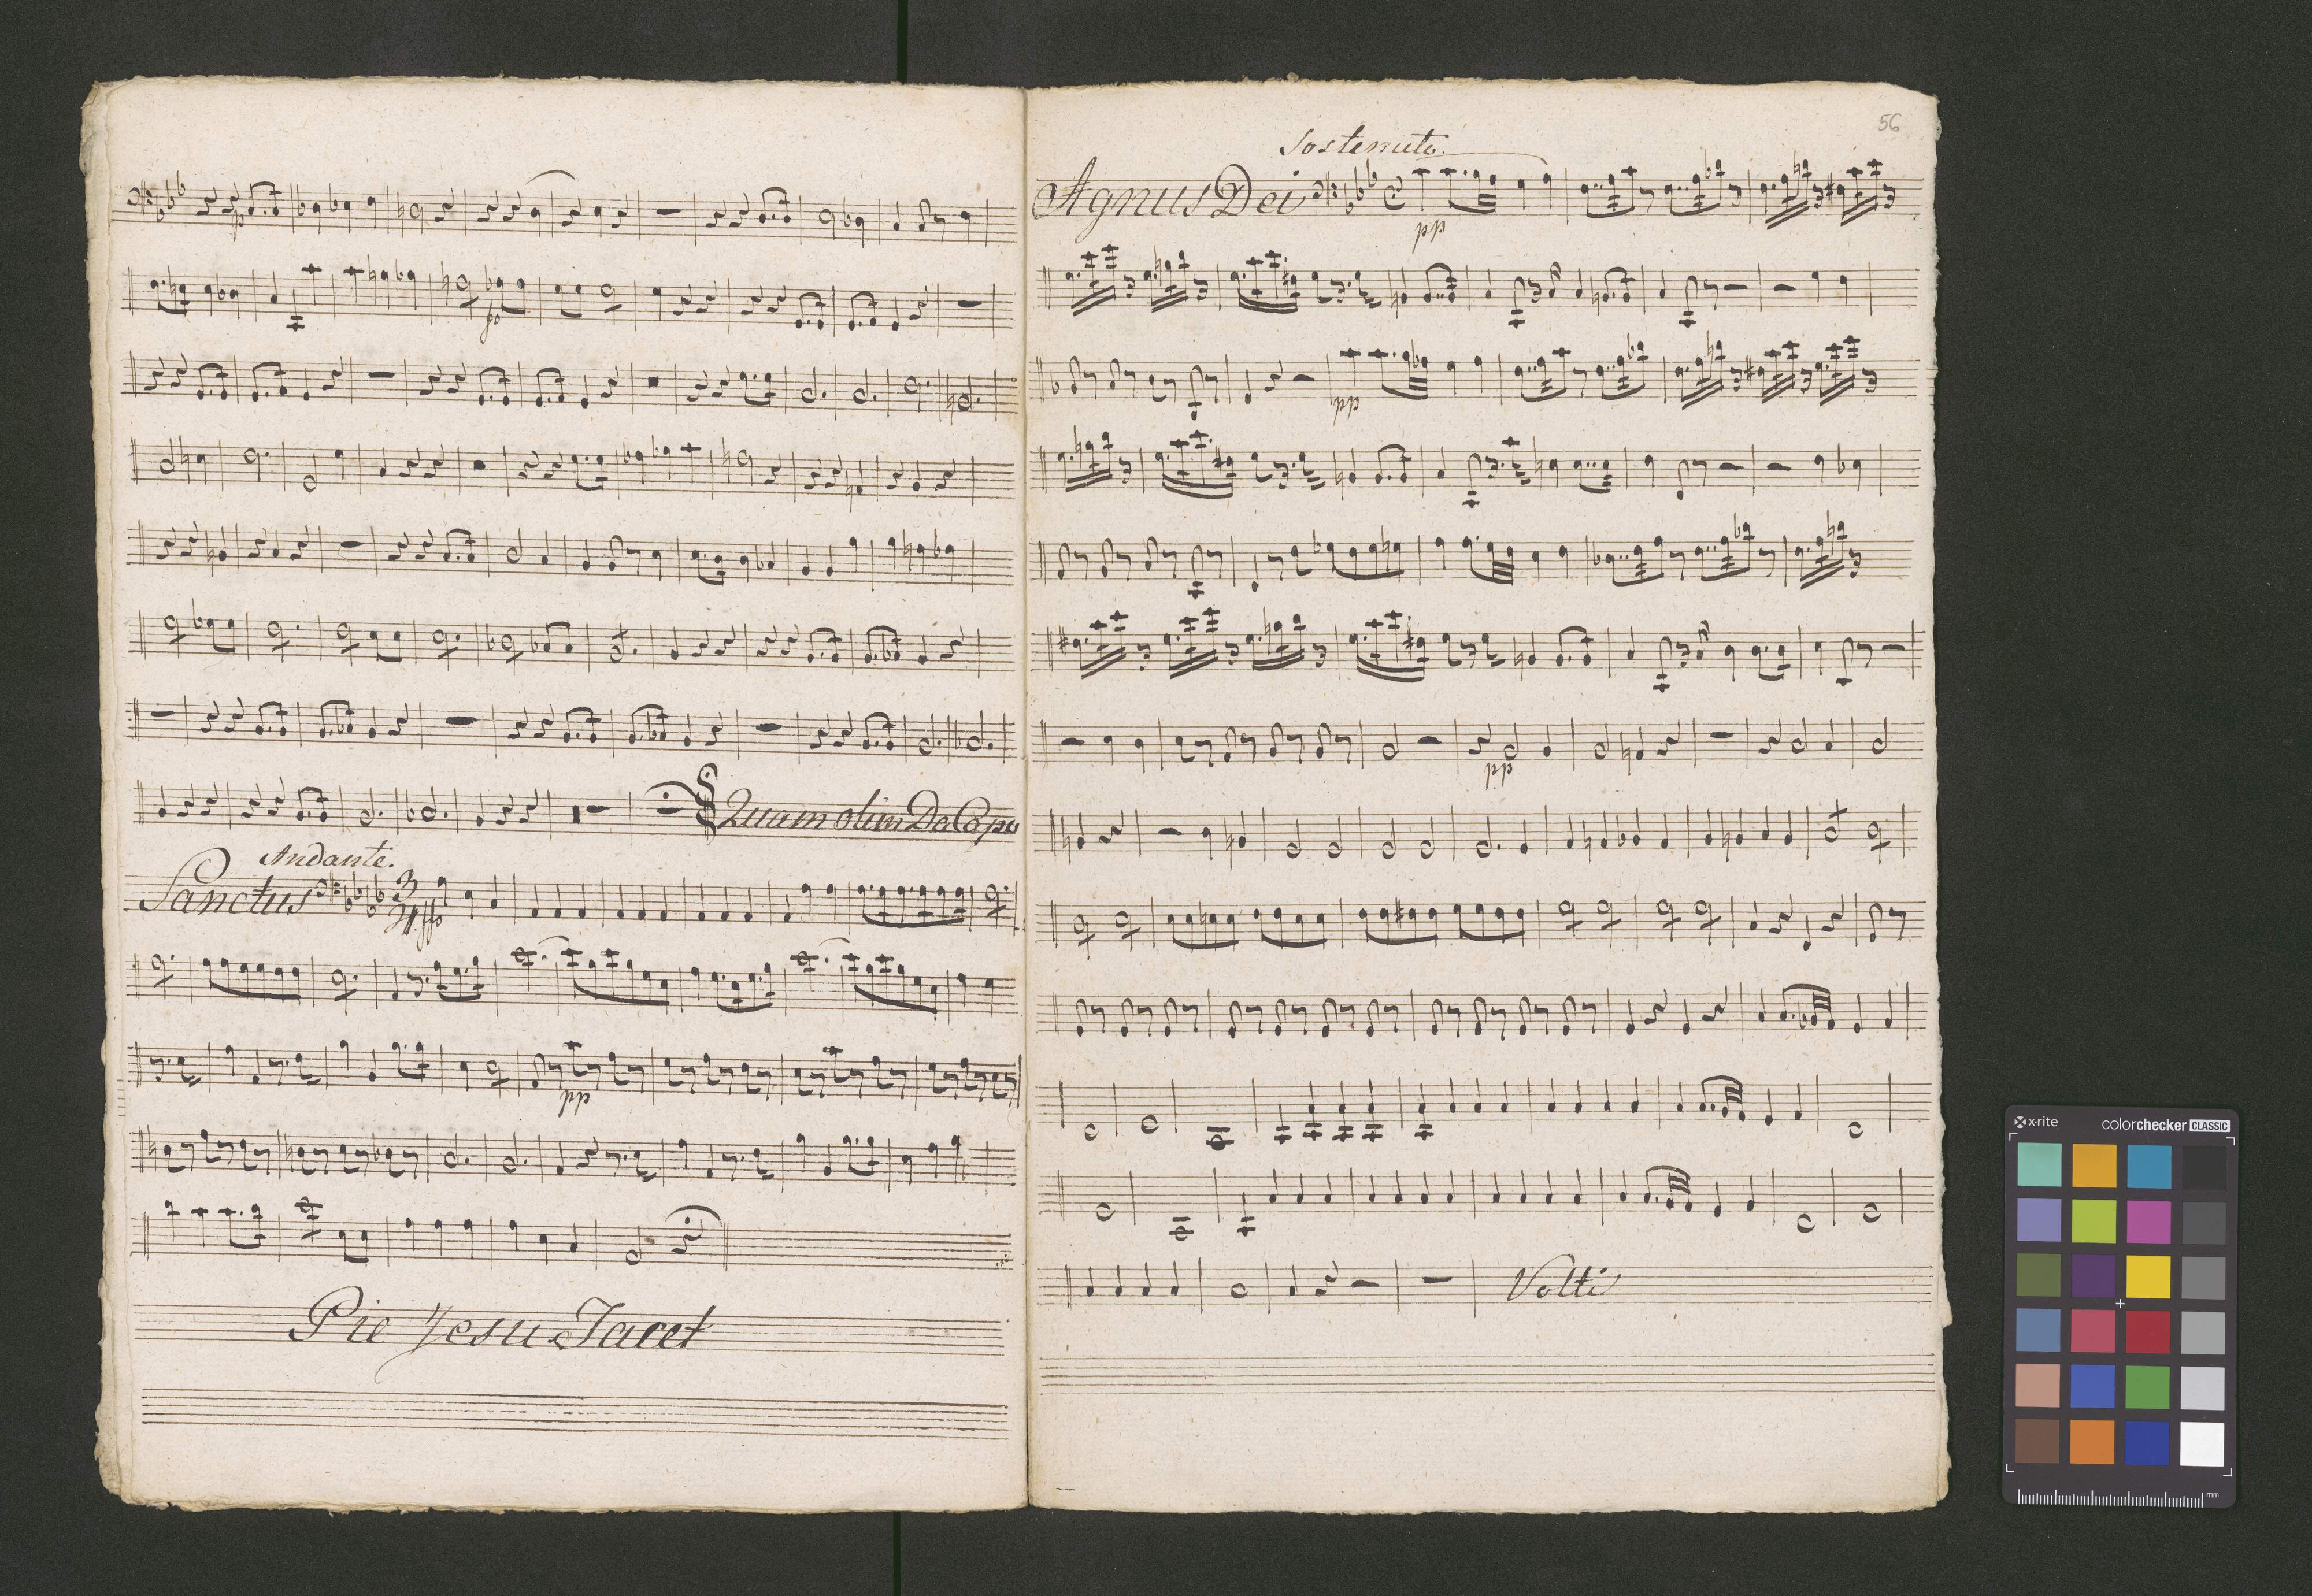 p
p
Quam olim Da Capo
Andante.
Sanctus 3 ff
pp
Pie Jesu Tacet
56
Sostenuto.
Agnus Dei
pp
pp
pp
Volti
x-rite
colorchecker CLASSIC
mm